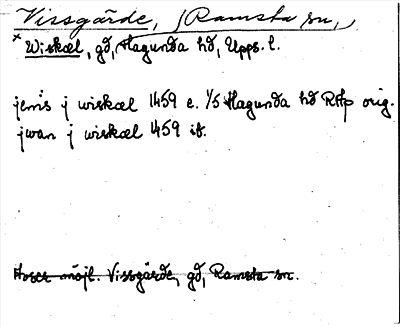 Vissgärde, (Ramsta sn,)
× Wiskæl, gd, Hagunda hd, Upps. l.
jenis j wiskæl 1459 e. 1/5 Hagunda hd RAp orig.
jwan j wiskæl 1459 ib.
möjl. Vissgärde, gd, Ramsta sn.